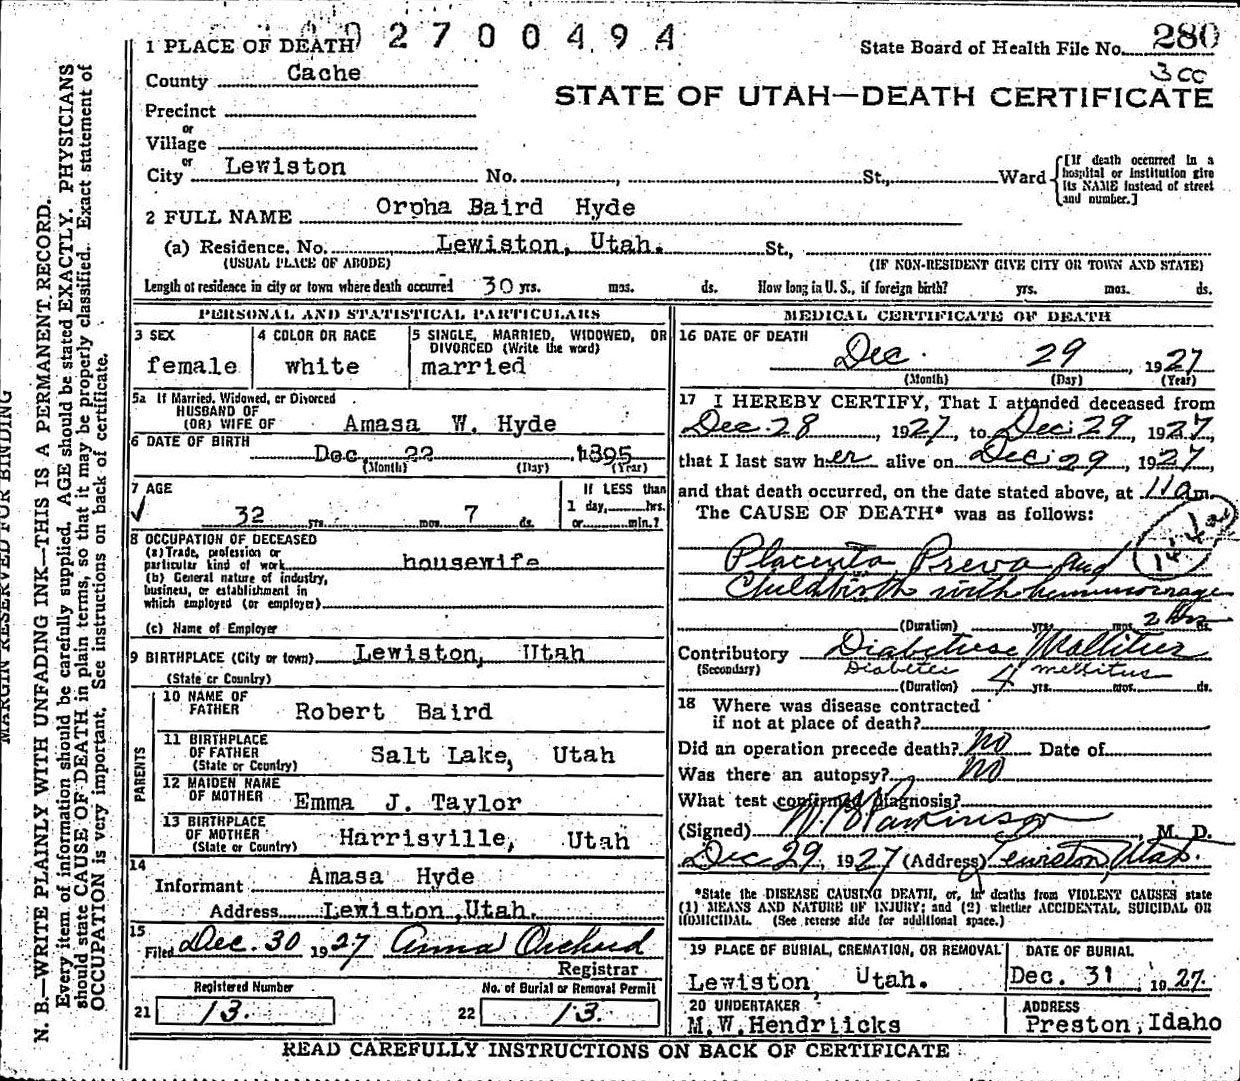 2 7 0 0 4 9 4
1 PLACE OF DEATH
State Board of Health File No. 280
3 cc
County Cache
STATE OF UTAH—DEATH CERTIFICATE
Precinct
or
Village
or
City Lewiston No. , St., Ward
[If death occurred in a hospital or institution give its NAME instead of street and number.]
2 FULL NAME Orpha Baird Hyde
(a) Residence. No. Lewiston, Utah. St.,
(USUAL PLACE OF ABODE) (IF NON-RESIDENT GIVE CITY OR TOWN AND STATE)
Length of residence in city or town where death occurred 30 yrs. mos. ds. How long in U. S., if foreign birth? yrs. mos. ds.
PERSONAL AND STATISTICAL PARTICULARS
3 SEX
female
4 COLOR OR RACE
white
5 SINGLE, MARRIED, WIDOWED, OR
DIVORCED (Write the word)
married
5a If Married, Widowed, or Divorced
HUSBAND OF
(OR) WIFE OF Amasa W. Hyde
6 DATE OF BIRTH
Dec. 22 1895
(Month) (Day) (Year)
7 AGE
32 yrs. mos. 7 ds.
If LESS than
1 day, hrs.
or min.?
8 OCCUPATION OF DECEASED
(a) Trade, profession or
particular kind of work housewife
(b) General nature of industry,
business, or establishment in
which employed (or employer)
(c) Name of Employer
9 BIRTHPLACE (City or town) Lewiston, Utah
(State or Country)
PARENTS
10 NAME OF
FATHER Robert Baird
11 BIRTHPLACE
OF FATHER Salt Lake, Utah
(State or Country)
12 MAIDEN NAME
OF MOTHER Emma J. Taylor
13 BIRTHPLACE
OF MOTHER Harrisville, Utah
(State or Country)
14
Informant Amasa Hyde
Address Lewiston, Utah.
15
Filed Dec. 30 1927 Anna Orchard
Registrar
Registered Number
21 13.
No. of Burial or Removal Permit
22 13.
MEDICAL CERTIFICATE OF DEATH
16 DATE OF DEATH
Dec. 29, 1927
(Month) (Day) (Year)
17 I HEREBY CERTIFY, That I attended deceased from
Dec. 28, 1927, to Dec. 29, 1927,
that I last saw her alive on Dec. 29, 1927,
and that death occurred, on the date stated above, at 11 am.
The CAUSE OF DEATH* was as follows:
Placenta Preva and
Childbirth with hemmorrage
(Duration) yrs. mos. 2 hrs ds.
Contributory Diabetuse Mallitus
(Secondary) Diabetes mellitus
(Duration) 4 yrs. mos. ds.
18 Where was disease contracted
if not at place of death?
Did an operation precede death? no Date of
Was there an autopsy? no
What test confirmed diagnosis?
(Signed) W B Parkinson, M. D.
Dec 29, 1927 (Address) Lewiston, Utah.
*State the DISEASE CAUSING DEATH, or, in deaths from VIOLENT CAUSES state
(1) MEANS AND NATURE OF INJURY; and (2) whether ACCIDENTAL, SUICIDAL OR
HOMICIDAL. (See reverse side for additional space.)
19 PLACE OF BURIAL, CREMATION, OR REMOVAL
Lewiston, Utah.
DATE OF BURIAL
Dec. 31 1927.
20 UNDERTAKER
M.W.Hendriicks
ADDRESS
Preston, Idaho
READ CAREFULLY INSTRUCTIONS ON BACK OF CERTIFICATE
MARGIN RESERVED FOR BINDING
N. B.—WRITE PLAINLY WITH UNFADING INK—THIS IS A PERMANENT RECORD.
Every item of information should be carefully supplied. AGE should be stated EXACTLY. PHYSICIANS
should state CAUSE OF DEATH in plain terms, so that it may be properly classified. Exact statement of
OCCUPATION is very important. See instructions on back of certificate.